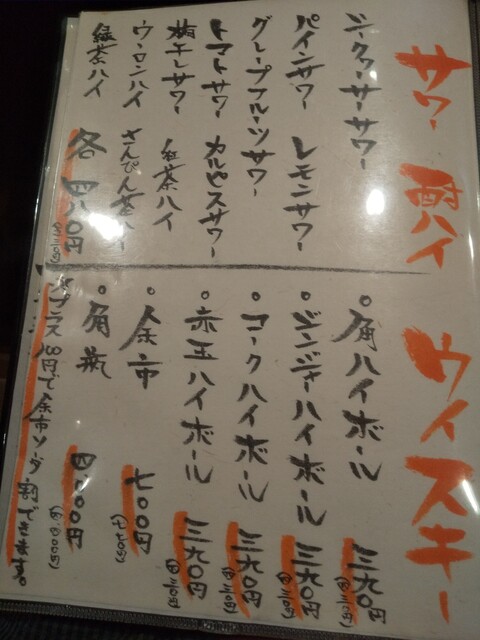 サワー 酎ハイ
シークワーサーサワー
パインサワー レモンサワー
グレープフルーツサワー
トマトサワー カルピスサワー
梅干しサワー 紅茶ハイ
ウーロンハイ さんぴん茶ハイ
緑茶ハイ 各四八〇円
ウイスキー
○角ハイボール 三六〇円
○ジンジャーハイボール 三六〇円
○コークハイボール 三六〇円
○赤玉ハイボール 三六〇円
○余市 七〇〇円
○角瓶
プラス100円で余市ソーダ割できます。